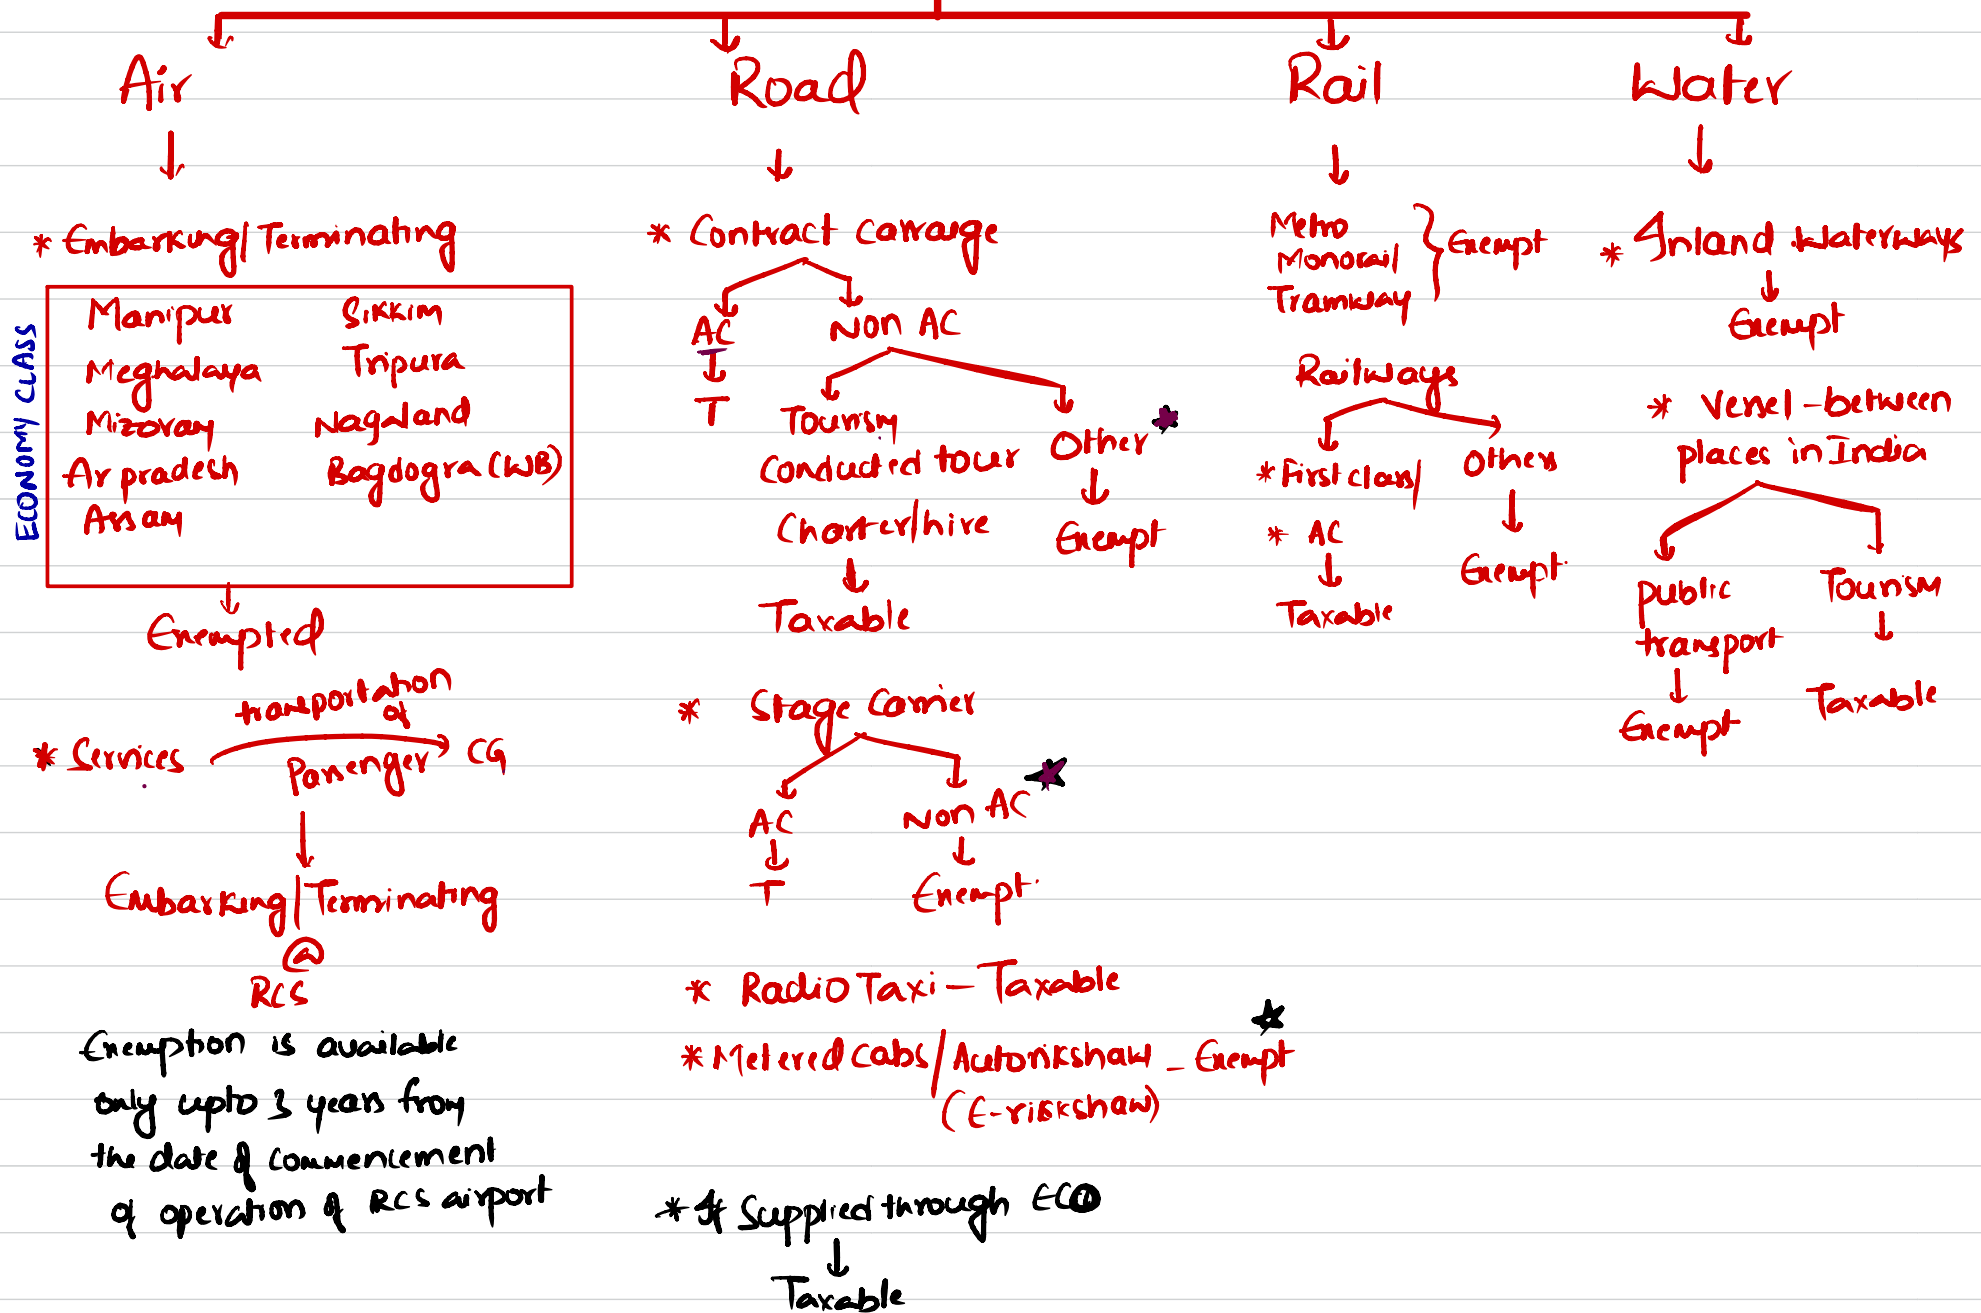 Air
* Embarking/Terminating
ECONOMY CLASS
Manipur Sikkim
Meghalaya Tripura
Mizoram Nagaland
Ar pradesh Bagdogra (WB)
Assam
Exempted
transportation of
* Services Passenger CG
Embarking/Terminating
@
RCS
Exemption is available
only upto 3 years from
the date of commencement
of operation of RCS airport
Road
* Contract carraige
AC Non AC
T
Tourism
Conducted tour
Charter/hire
Taxable
Other
Exempt
* Stage Carrier
AC Non AC
T Exempt
* Radio Taxi - Taxable
* Metered cabs/Autorikshaw - Exempt
(E-rikshaw)
* If supplied through ECO
Taxable
Rail
Metro
Monorail
Tramway
Exempt
Railways
* First class/
* AC
Taxable
Others
Exempt
Water
* Inland waterways
Exempt
* Vessel - between
places in India
public
transport
Exempt
Tourism
Taxable